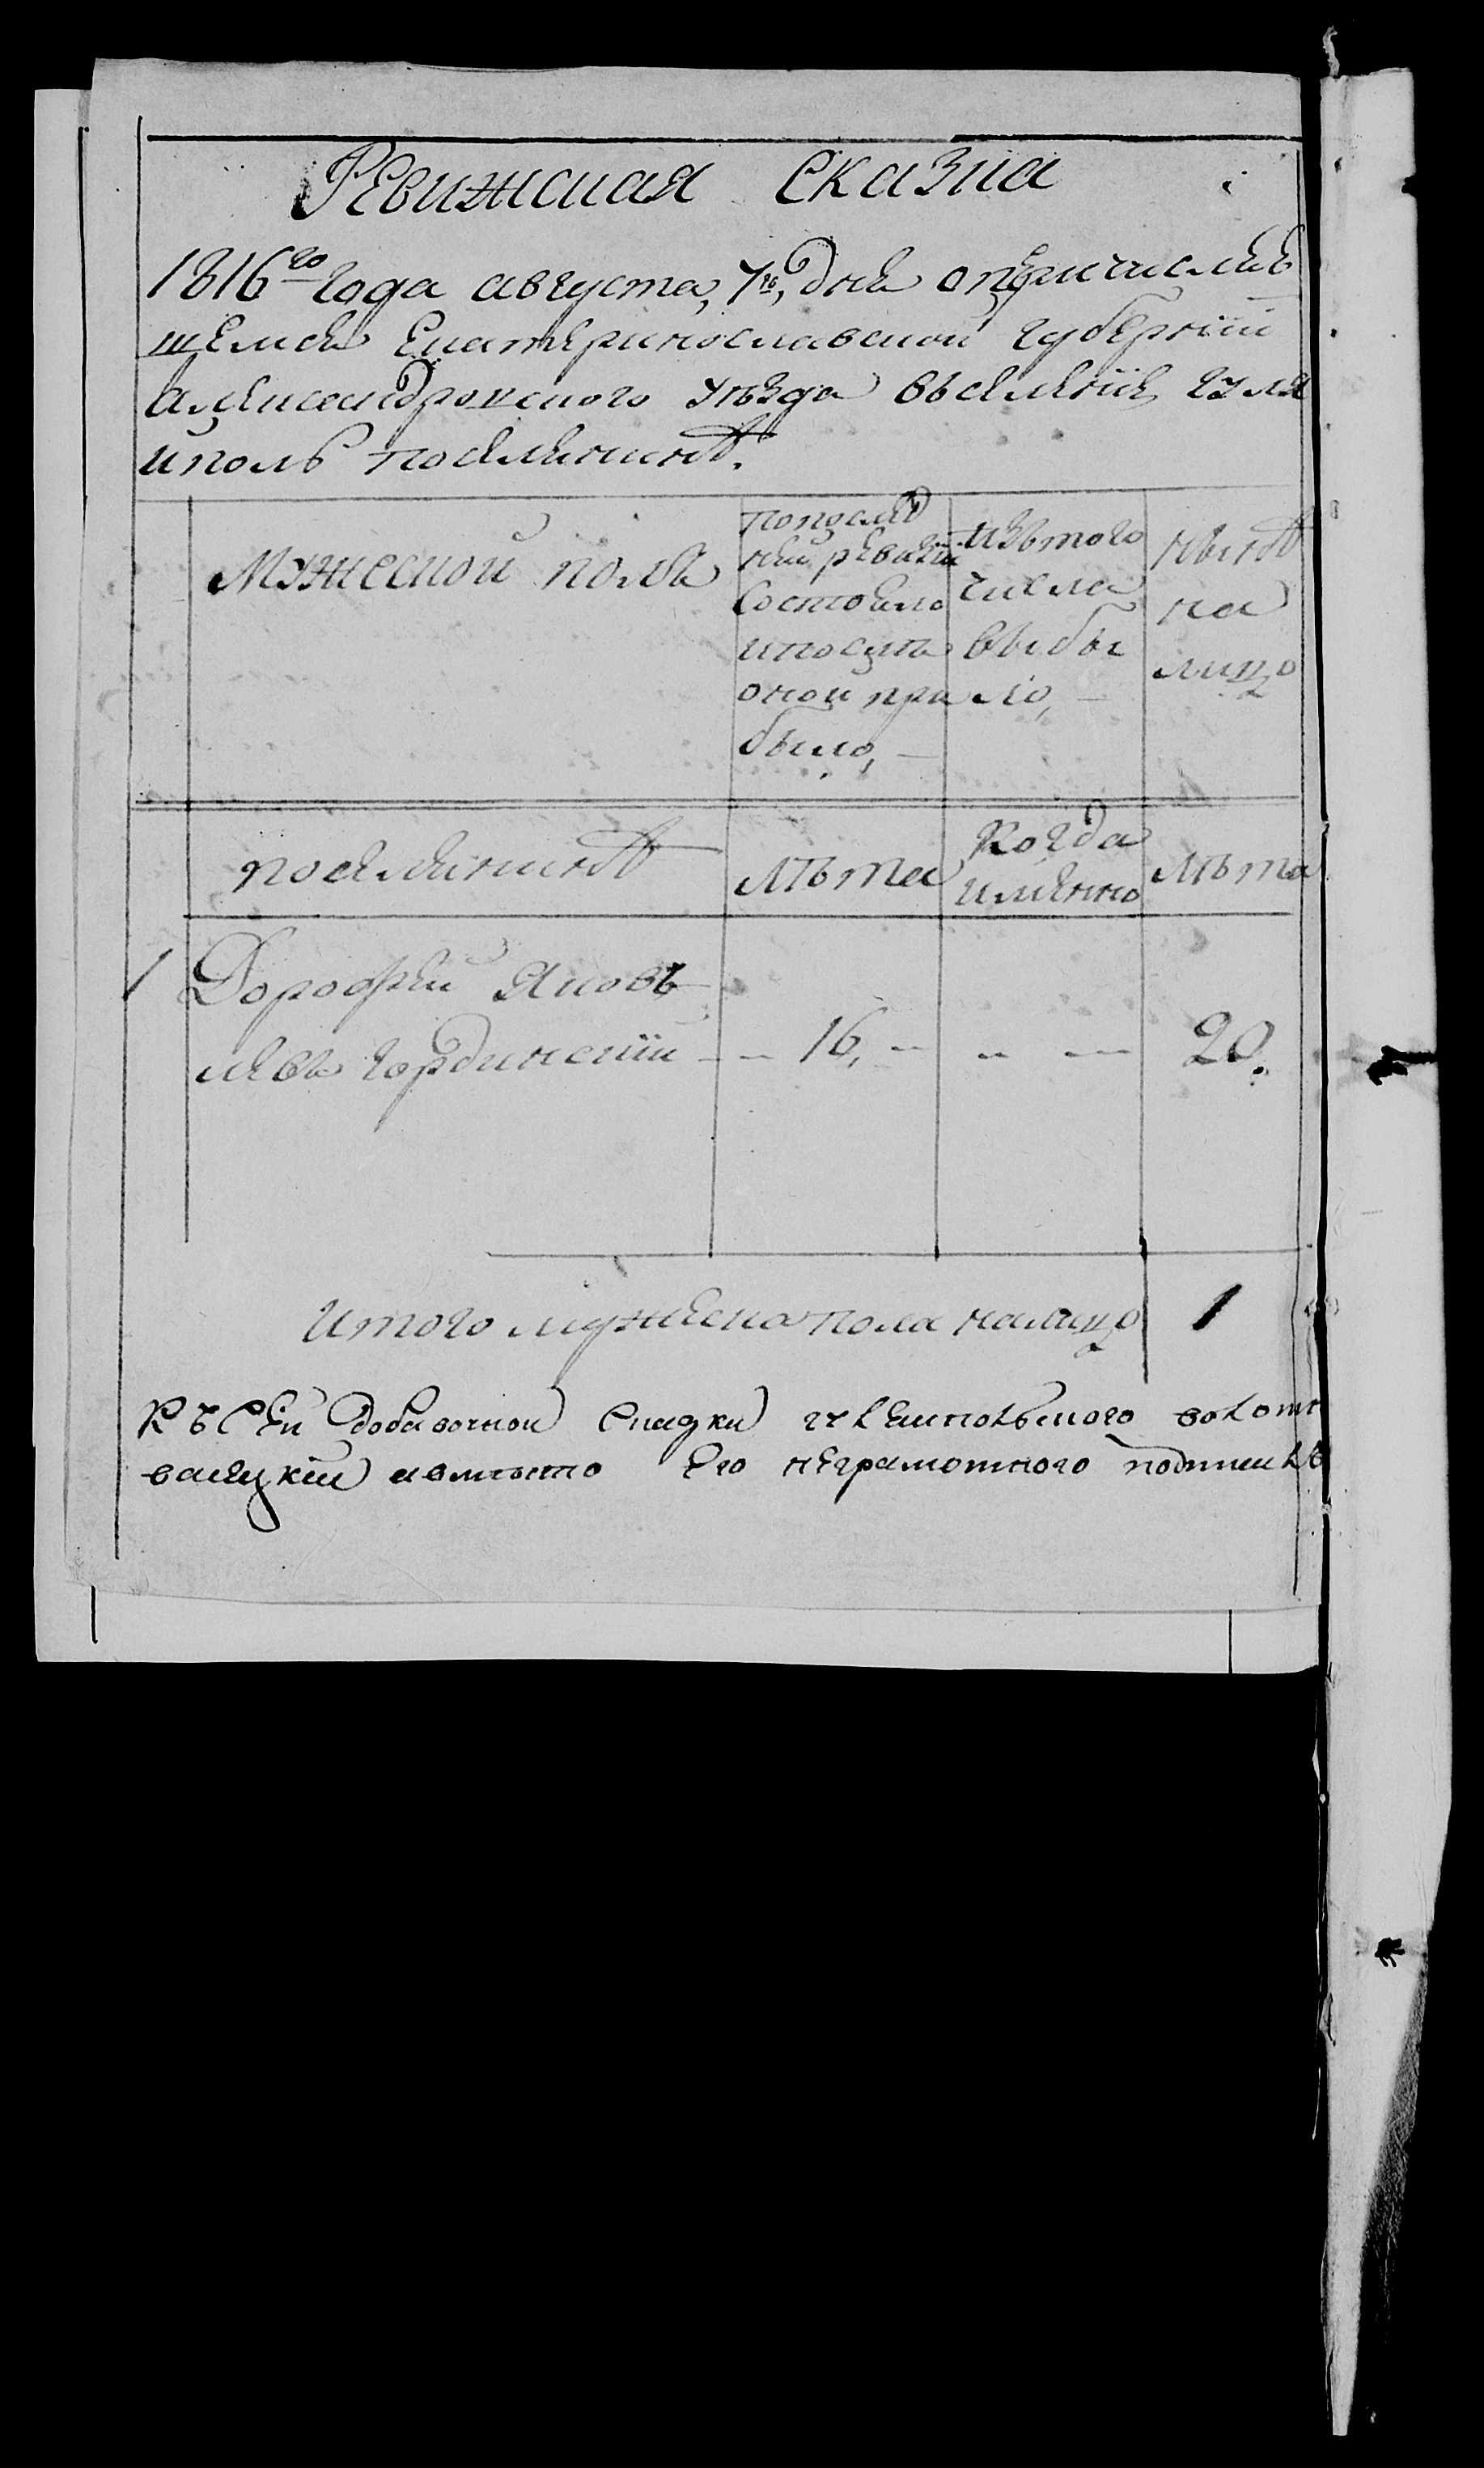 Ревижская сказка
1816го года августа, 7го, дня о причислив
шемся Екатеринославской губернїи
Александровского уѣзда вселенїе гуля
иполь поселенинѣ.
Мужеской полъ
по послѣд
ней ревизїи
состояло
и послѣ
оной при
было,
изъ того
числа
выбы
ло,
нынѣ
на
лицо
поселенинѣ
лѣта
Когда
именно
лѣта
1 Дорофей Яковъ
левъ Гординскїй - - 16, - - - 20.
Итого мужеска пола налицо 1
Къ сей добавочной скаски гуляипольского волост
васецкїй авместо его неграмотного подписалъ